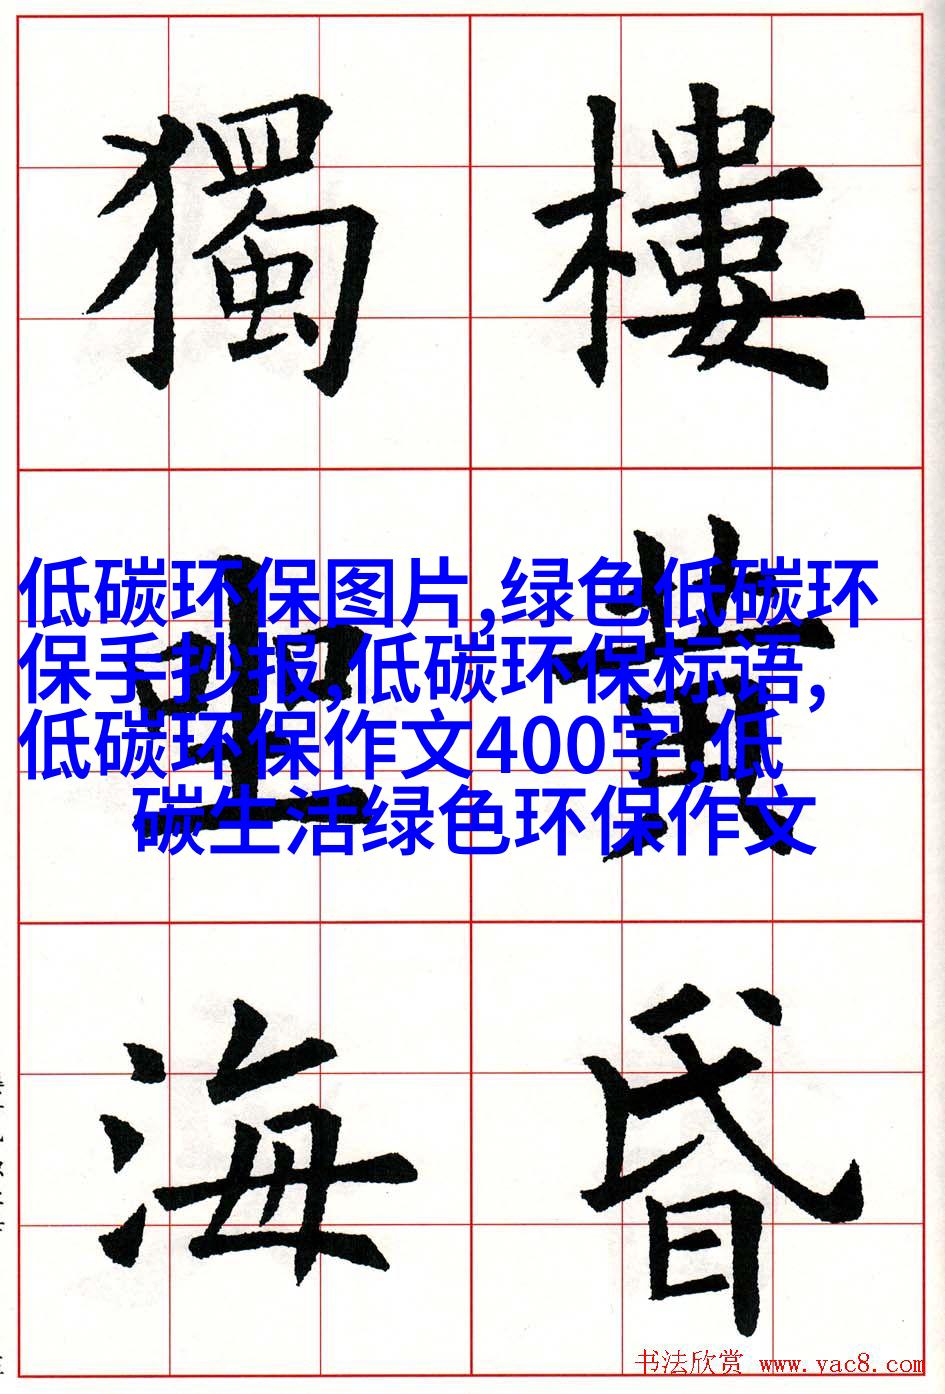 樓黄昏
獨海
低碳环保图片,绿色低碳环
保手抄报,低碳环保标语,
低碳环保作文400字,低
碳生活绿色环保作文
书法欣赏 www.yac8.com